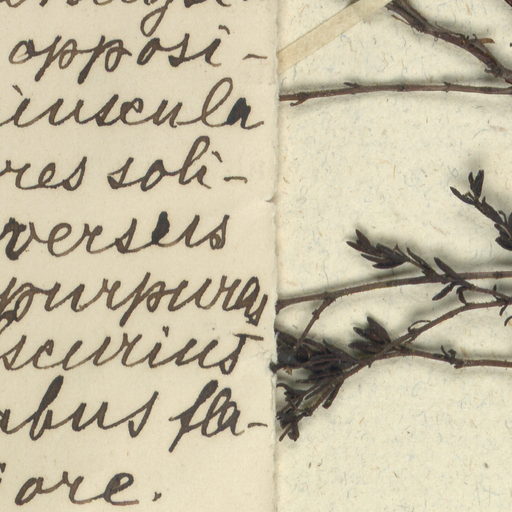 opposi-
iuscula
res soli-
versus
purpuras
scurius
abus fla-
ore.